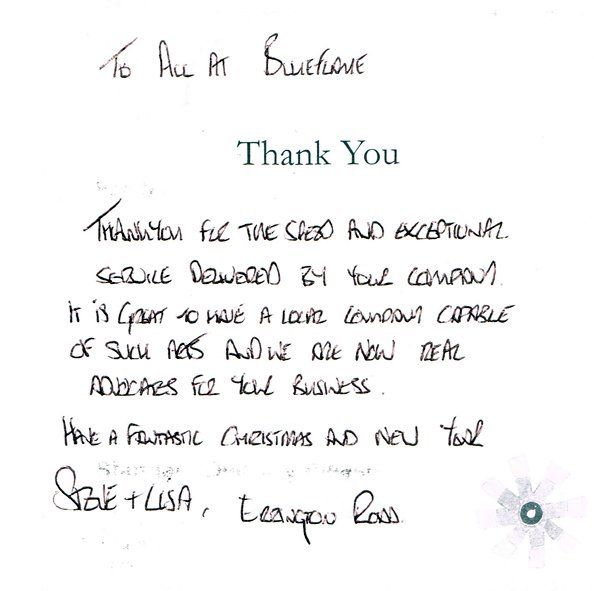 To All At Blueflame
Thank You
Thankyou for the speed and exceptional
service delivered by your company.
It is great to have a local company capable
of such acts and we are now real
advocates for your business.
Have a fantastic Christmas and New Year
+ Lisa, Road.